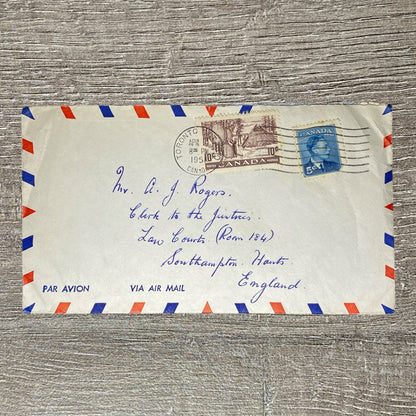 TORONTO
APR
8 PM
195
CANADA
10¢ 10¢
CANADA
CANADA
5¢
Mr. A. J. Rogers.
Clerk to the Justices
Law Courts. (Room 184)
Southampton. Hants.
England.
PAR AVION VIA AIR MAIL